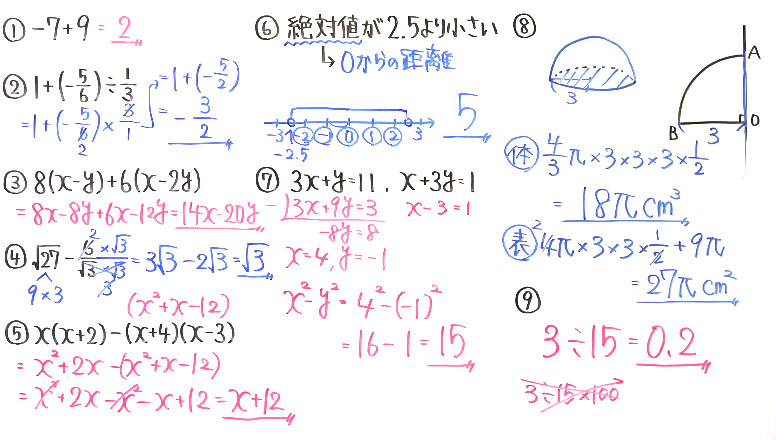 ① -7+9 = 2
② 1+(-5/6)÷1/3 = 1+(-5/2)
= 1+(-5/6)×3/1 = -3/2
2
③ 8(x-y)+6(x-2y)
= 8x-8y+6x-12y = 14x-20y
④ √27 - 6×√3/√3×√3 = 3√3-2√3 = √3
2
3
9×3
(x²+x-12)
⑤ x(x+2)-(x+4)(x-3)
= x²+2x-(x²+x-12)
= x²+2x-x²-x+12 = x+12
⑥ 絶対値が2.5より小さい
↳ 0からの距離
-3 -2 -1 0 1 2 3
-2.5
5
⑦ 3x+y=11, x+3y=1
-)3x+9y=3 x-3=1
-8y=8
x=4, y=-1
x²-y² = 4²-(-1)²
= 16-1 = 15
⑧
3
A
B 3 O
体 4/3π×3×3×3×1/2
= 18πcm³
表 4π×3×3×1/2+9π
2
= 27πcm²
⑨
3÷15 = 0.2
3÷15×100